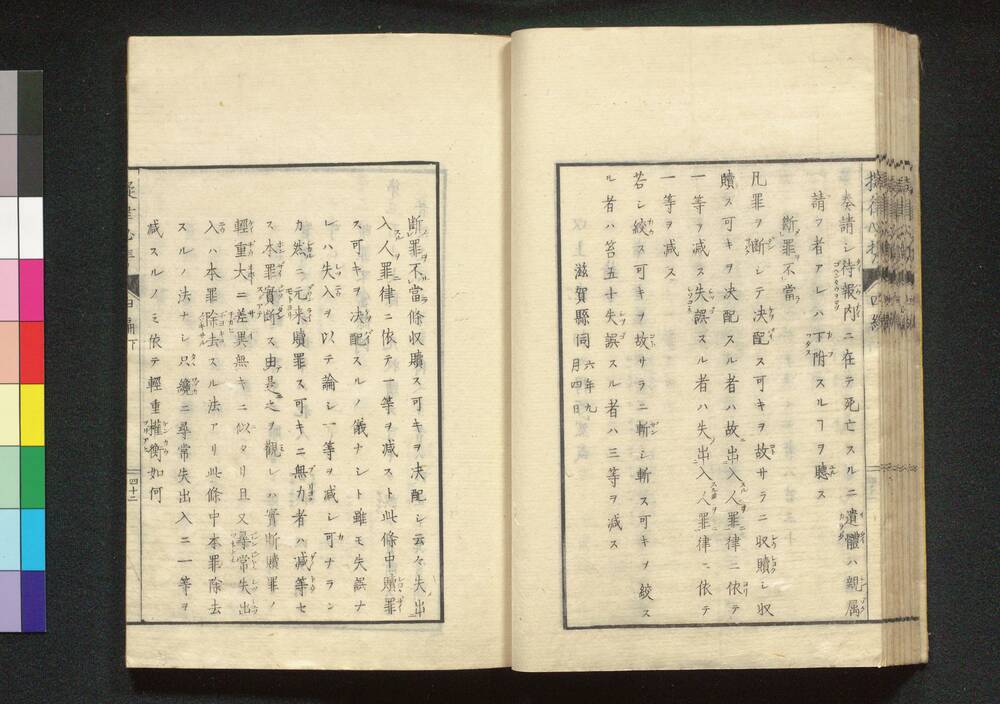 奏請シ待報内ニ在テ死亡スルニ遺體ハ親屬
請フ者アレハ下附スルヿヲ聽ス
斷罪不當
凡罪ヲ断シテ决配ス可キヲ故サラニ収贖シ収
贖ス可キヲ决配スル者ハ故出入人罪律ニ依テ
一等ヲ减ス失誤スル者ハ失出入人罪律ニ依テ
一等ヲ减ス
若シ絞ス可キヲ故サラニ斬シ斬ス可キヲ絞ス
ル者ハ笞五十失誤スル者ハ三等ヲ减ス
滋賀縣伺 六年九月四日
断罪不當條収贖ス可キヲ决配シ云々失出
入人罪律ニ依テ一等ヲ减スト此條中贖罪
ス可キヲ决配スルノ儀ナシト雖モ失誤ナ
レハ失入ヲ以テ論シ一等ヲ减シ可ナラン
カ然ニ元来贖罪ス可キニ無力者ハ减等セ
ス本罪實断ス由是之ヲ觀レハ實断贖罪ノ
輕重大ニ差異無キニ似タリ且又尋常失出
入ハ本罪除去スル法アリ此條中本罪除去
スルノ法ナシ只纔ニ尋常失出入ニ一等ヲ
减スルノミ依テ輕重權衡如何
四編下
四十二